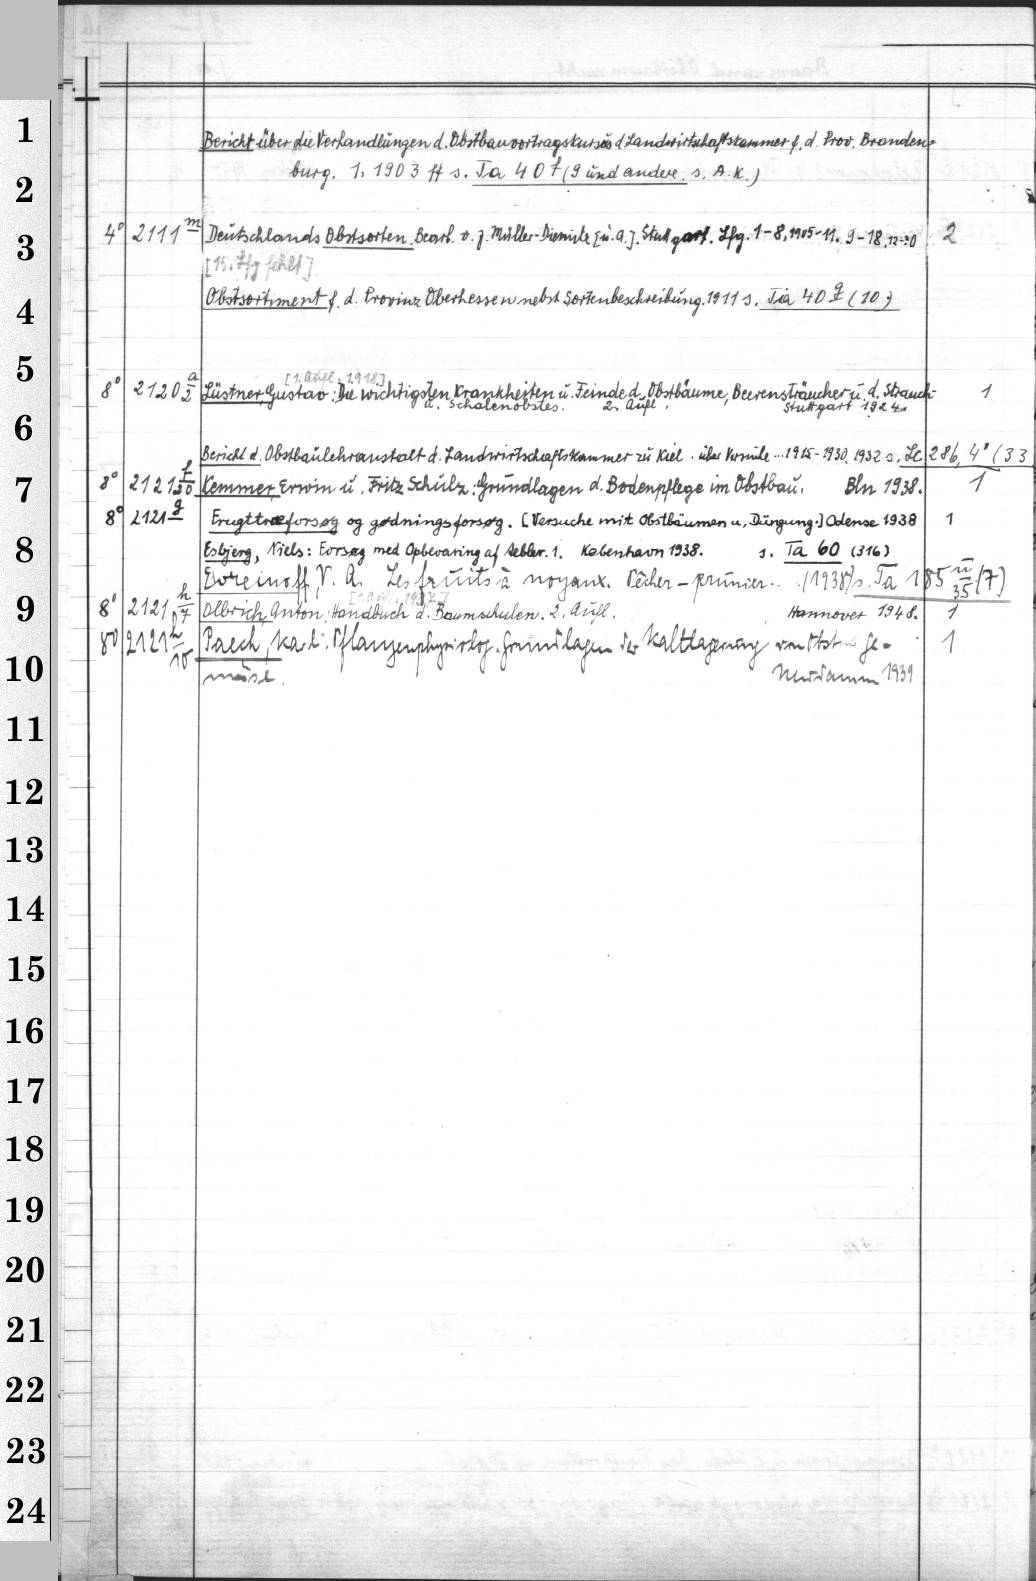 1
Bericht über die Verhandlungen d. Obstbauvortragskurses d Landwirtschaftskammer f. d. Prov. Branden-
burg. 1. 1903 ff s. Ta 40 f (9 und andere s. A. K.)
2
3
4° 2111 m Deutschlands Obstsorten. Bearb. v. J. Müller-Diemitz [u. a.]. Stuttgart. Lfg. 1-8, 1905-11. 9-18, 12-20 2
[15. Lfg fehlt]
4
Obstsortiment f. d. Provinz Oberhessen nebst Sortenbeschreibung. 1911 s. Ta 40 g (10)
5
[1. Aufl. 1918]
8° 2120 a/2 Lüstner, Gustav: Die wichtigsten Krankheiten u. Feinde d. Obstbäume, Beerensträucher u. d. Strauch- 1
u. Schalenobstes. 2. Aufl. Stuttgart 1924.
6
Bericht d. Obstbaulehranstalt d. Landwirtschaftskammer zu Kiel über 1915-1930. 1932 s. Lc 286, 4° (33
7
8° 2121 f/50 Kemmer, Erwin u. Fritz Schulz: Grundlagen d. Bodenpflege im Obstbau. Bln 1938. 1
8° 2121 g Frugttræforsøg og gødningsforsøg. [Versuche mit Obstbäumen u. Düngung.] Odense 1938 1
8
Esbjerg, Niels: Forsøg med Opbevaring af Aebler. 1. København 1938. s. Ta 60 (316)
Evreinoff, V. A. Les fruits à noyaux. Pêcher - prunier... (1938) s. Ta 185 u/35 (7)
9
[1. Aufl. 1937]
8° 2121 h/7 Olbrich, Anton: Handbuch d. Baumschulen. 2. Aufl. Hannover 1948. 1
8° 2121 h/10 Paech, Karl: Pflanzenphysiolog. Grundlagen der Kaltlagerung von Obst u. Ge- 1
10
müse. Neudamm 1939
11
12
13
14
15
16
17
18
19
20
21
22
23
24